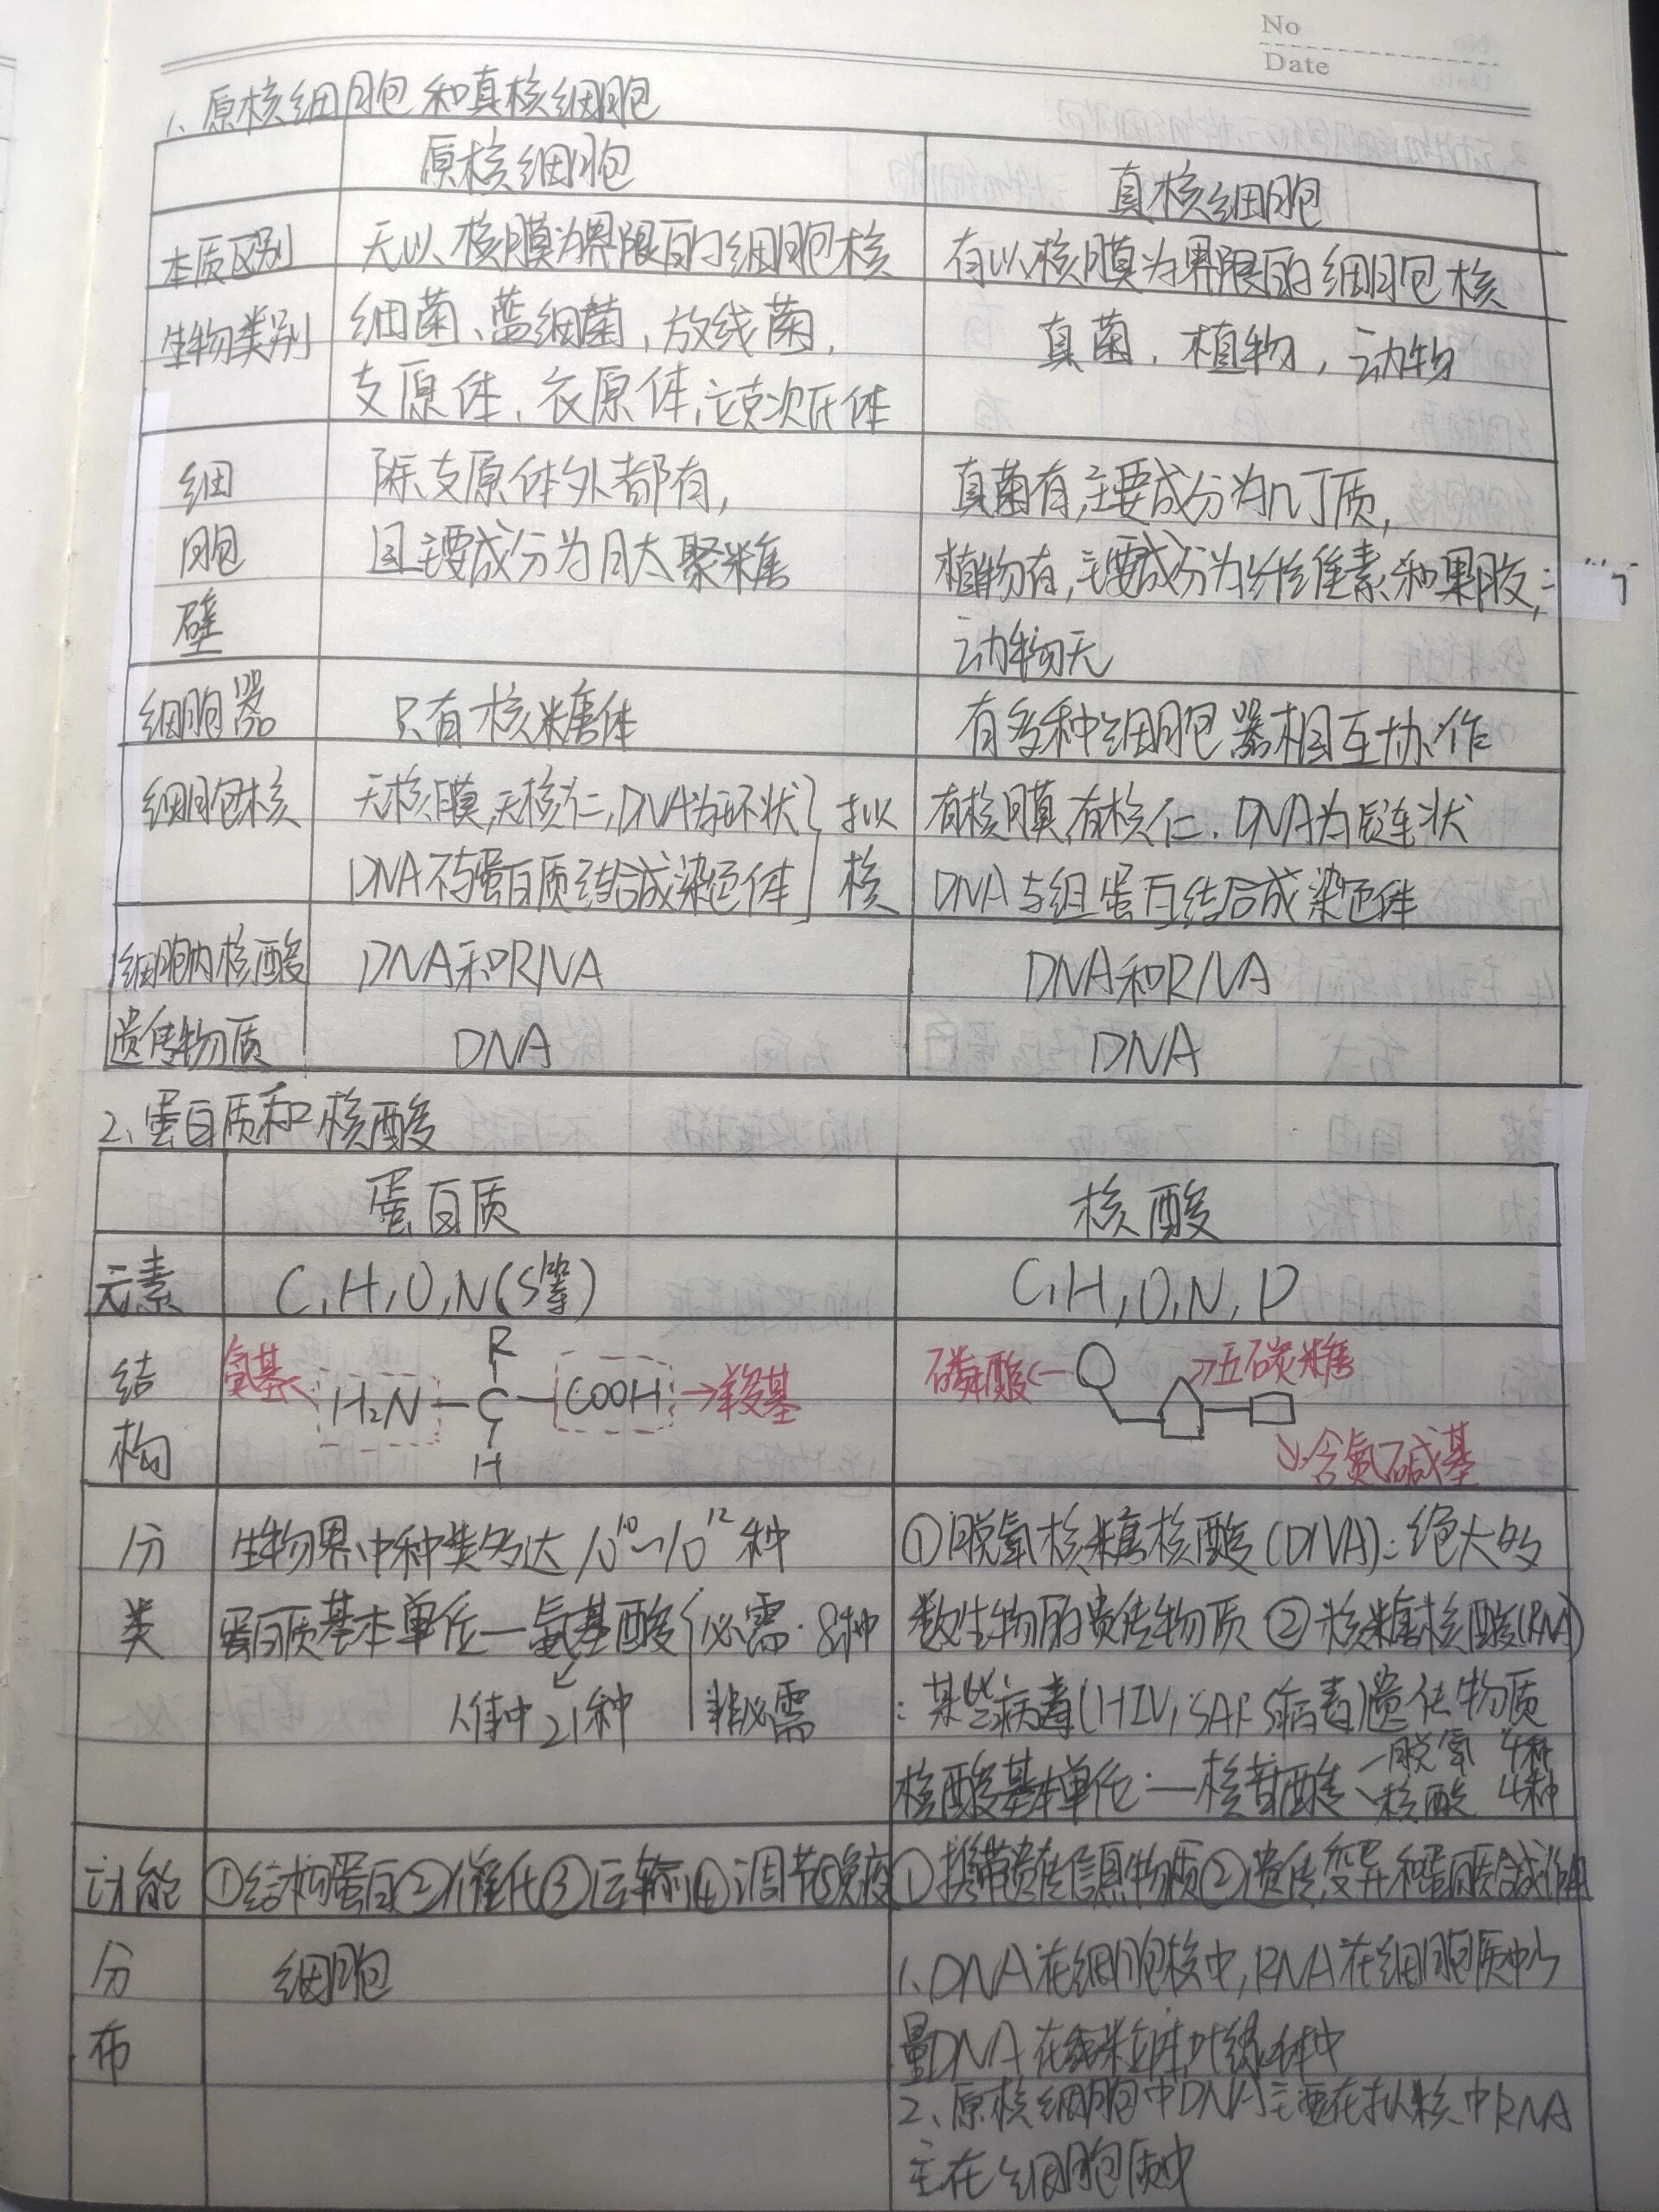 No
Date
1、原核细胞和真核细胞
原核细胞 真核细胞
本质区别 无以核膜为界限的细胞核 有以核膜为界限的细胞核
生物类别 细菌、蓝细菌,放线菌, 真菌,植物,动物
支原体,衣原体,立克次氏体
细 除支原体外都有, 真菌有,主要成分为几丁质,
胞 且主要成分为肽聚糖 植物有,主要成分为纤维素和果胶,
壁 动物无
细胞器 只有核糖体 有多种细胞器相互协作
细胞核 无核膜,无核仁,DNA为环状 拟 有核膜,有核仁,DNA为链状
DNA不与蛋白质结合成染色体 核 DNA与组蛋白结合成染色体
细胞内核酸 DNA和RNA DNA和RNA
遗传物质 DNA DNA
2、蛋白质和核酸
蛋白质 核酸
元素 C,H,O,N(S等) C,H,O,N,P
结 氨基 R 磷酸 五碳糖
H₂N—C—COOH→羧基
构 H 含氮碱基
分 生物界中种类多达10¹⁰~10¹²种 ①脱氧核糖核酸(DNA):绝大多
类 蛋白质基本单位—氨基酸 必需·8种 数生物的遗传物质 ②核糖核酸(RNA)
人体中21种 非必需 :某些病毒(HIV,SARS病毒)遗传物质
核酸基本单位:—核苷酸 脱氧 4种
核酸 4种
功能 ①结构蛋白②催化③运输④调节⑤免疫 ①携带遗传信息物质②遗传变异和蛋白质合成作用
分 细胞 1、DNA在细胞核中,RNA在细胞质中少
布 量DNA在线粒体,叶绿体中
2、原核细胞中DNA主要在拟核中RNA
主在细胞质中